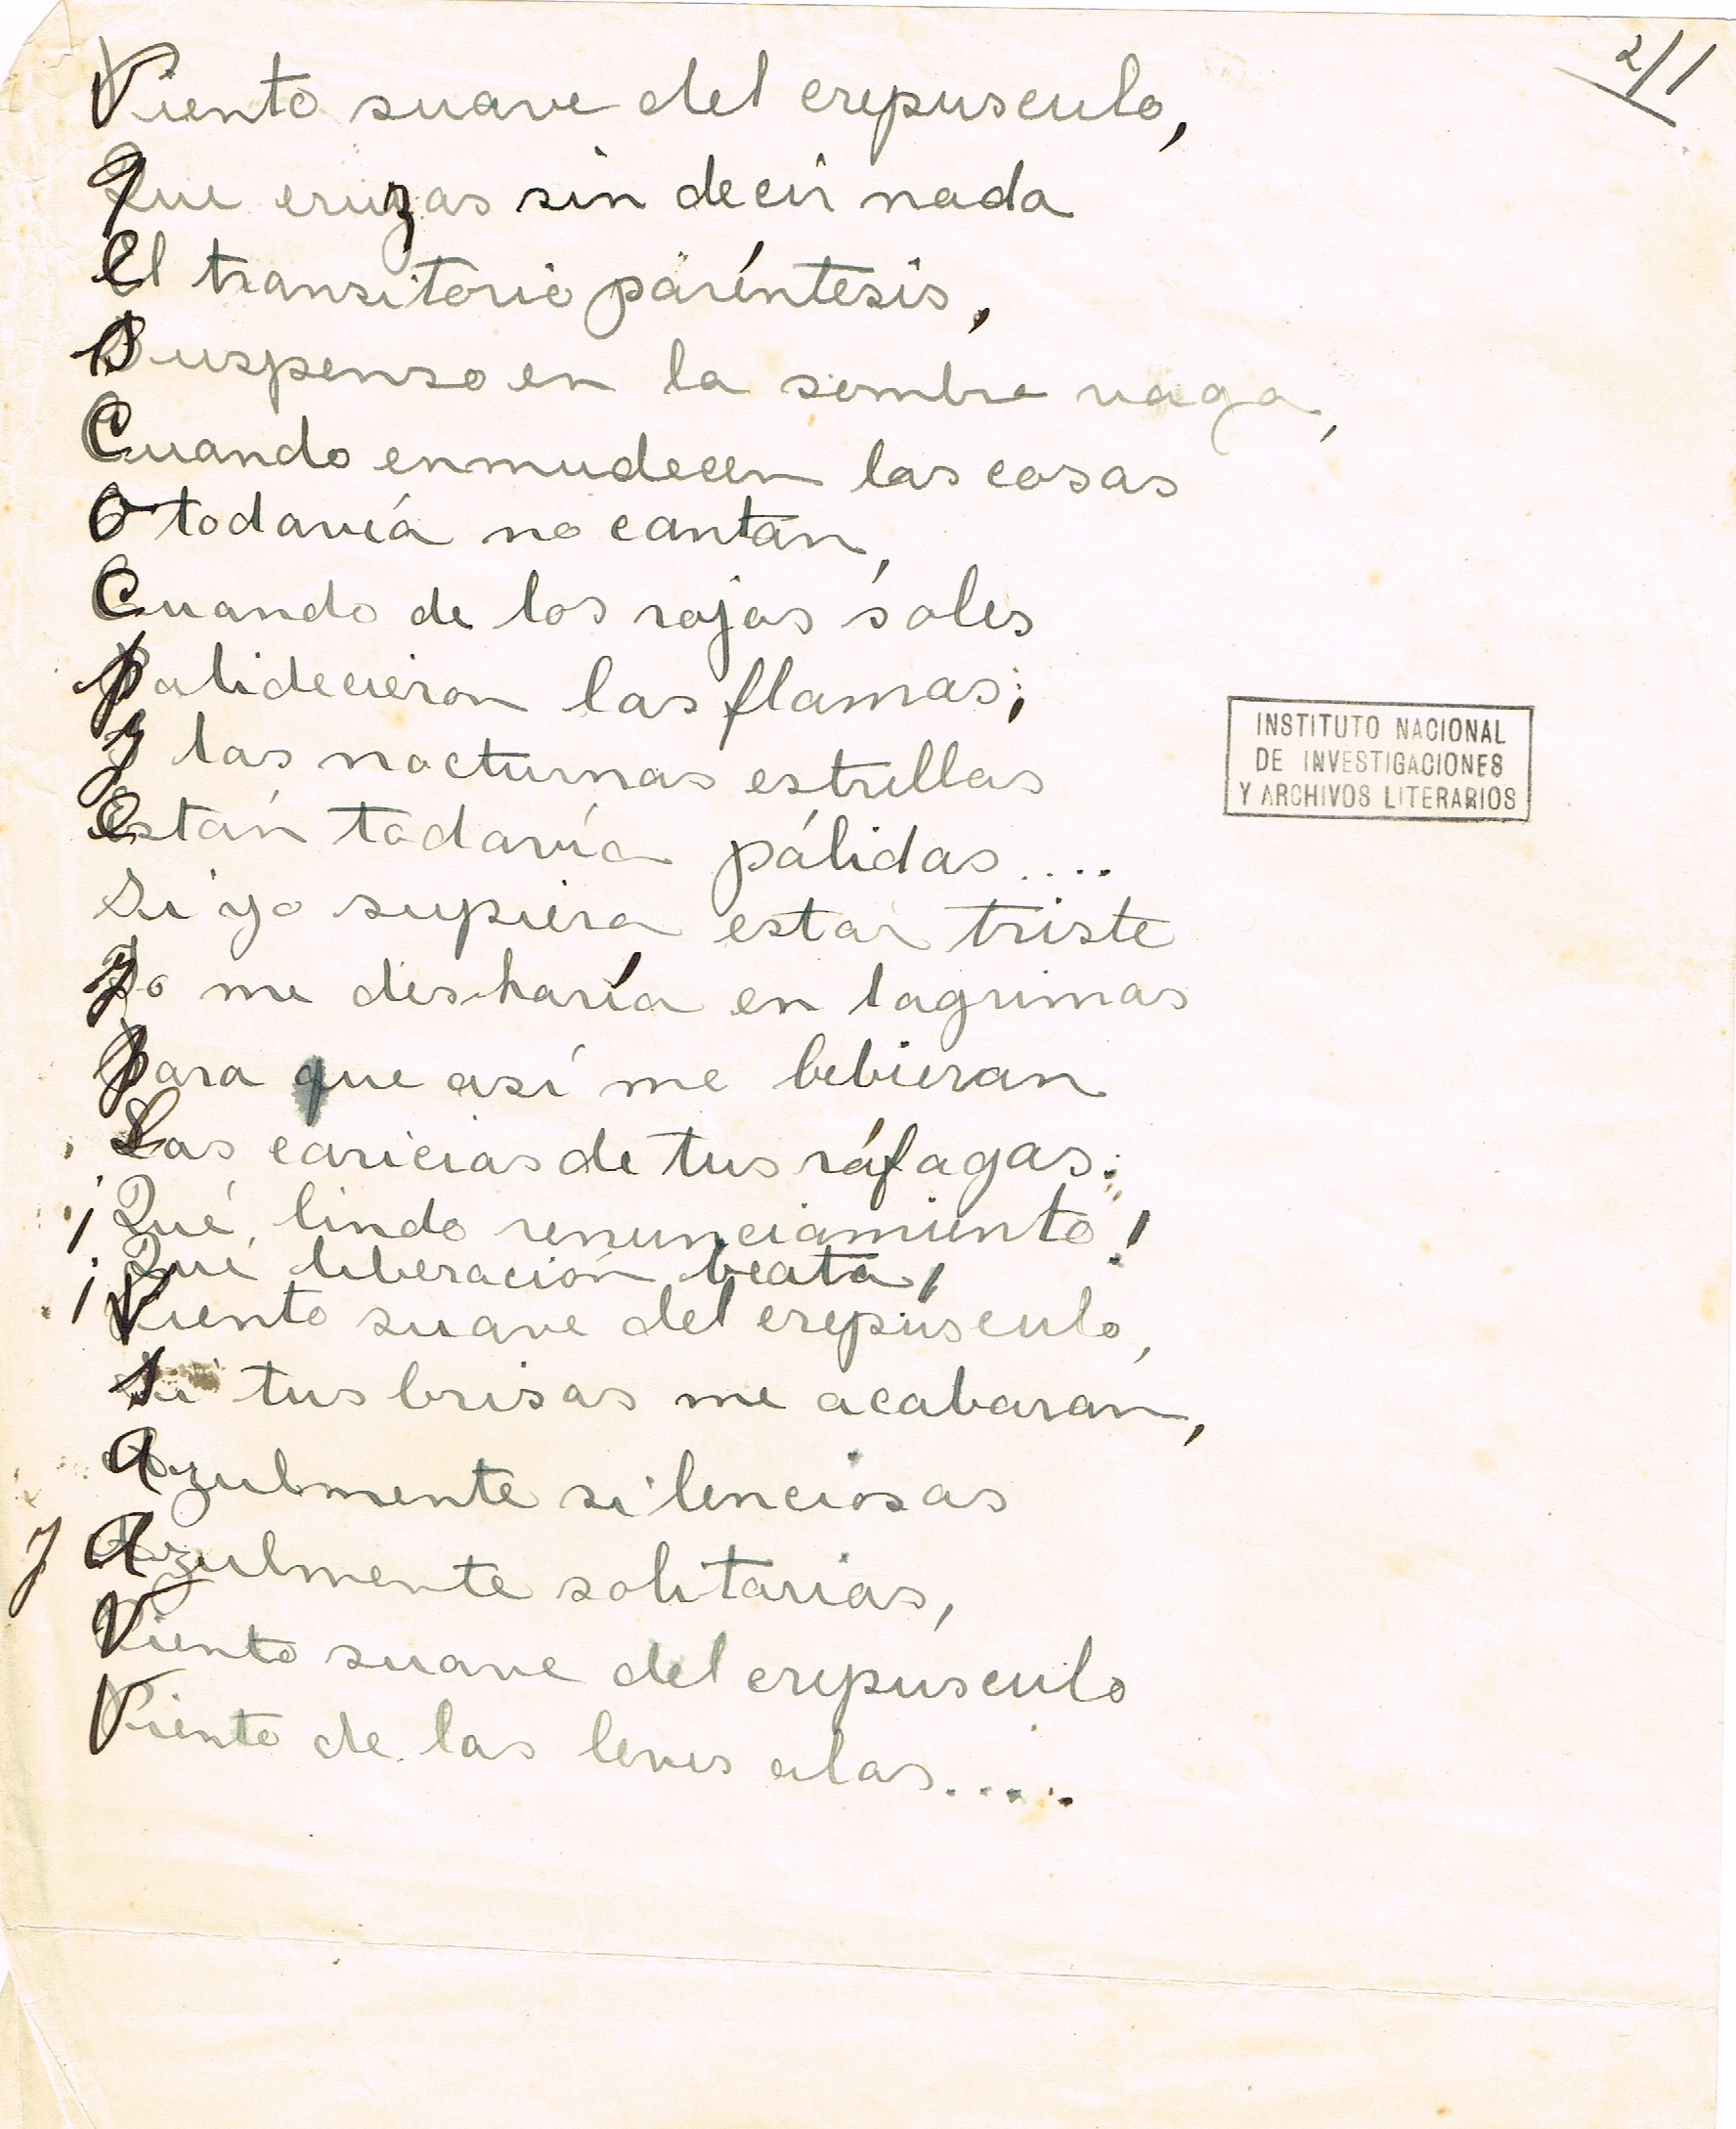 2/1
Viento suave del crepusculo,
que cruzas sin decir nada
el transitorio paréntesis,
suspenso en la sombra vaga,
Cuando enmudecen las cosas
O todavía no cantan,
Cuando de los rojos soles
palidecieron las flamas;
y las nocturnas estrellas
están todavía pálidas....
Si yo supiera estar triste
yo me desharía en lagrimas
para que así me bebieran
Las caricias de tus ráfagas.
¡Qué lindo renunciamiento!
¡Qué liberación beata!
Viento suave del crepúsculo,
si tus brisas me acabaran,
Azulmente silenciosas
y Azulmente solitarias,
Viento suave del crepúsculo
Viento de las leves alas....
INSTITUTO NACIONAL
DE INVESTIGACIONES
Y ARCHIVOS LITERARIOS